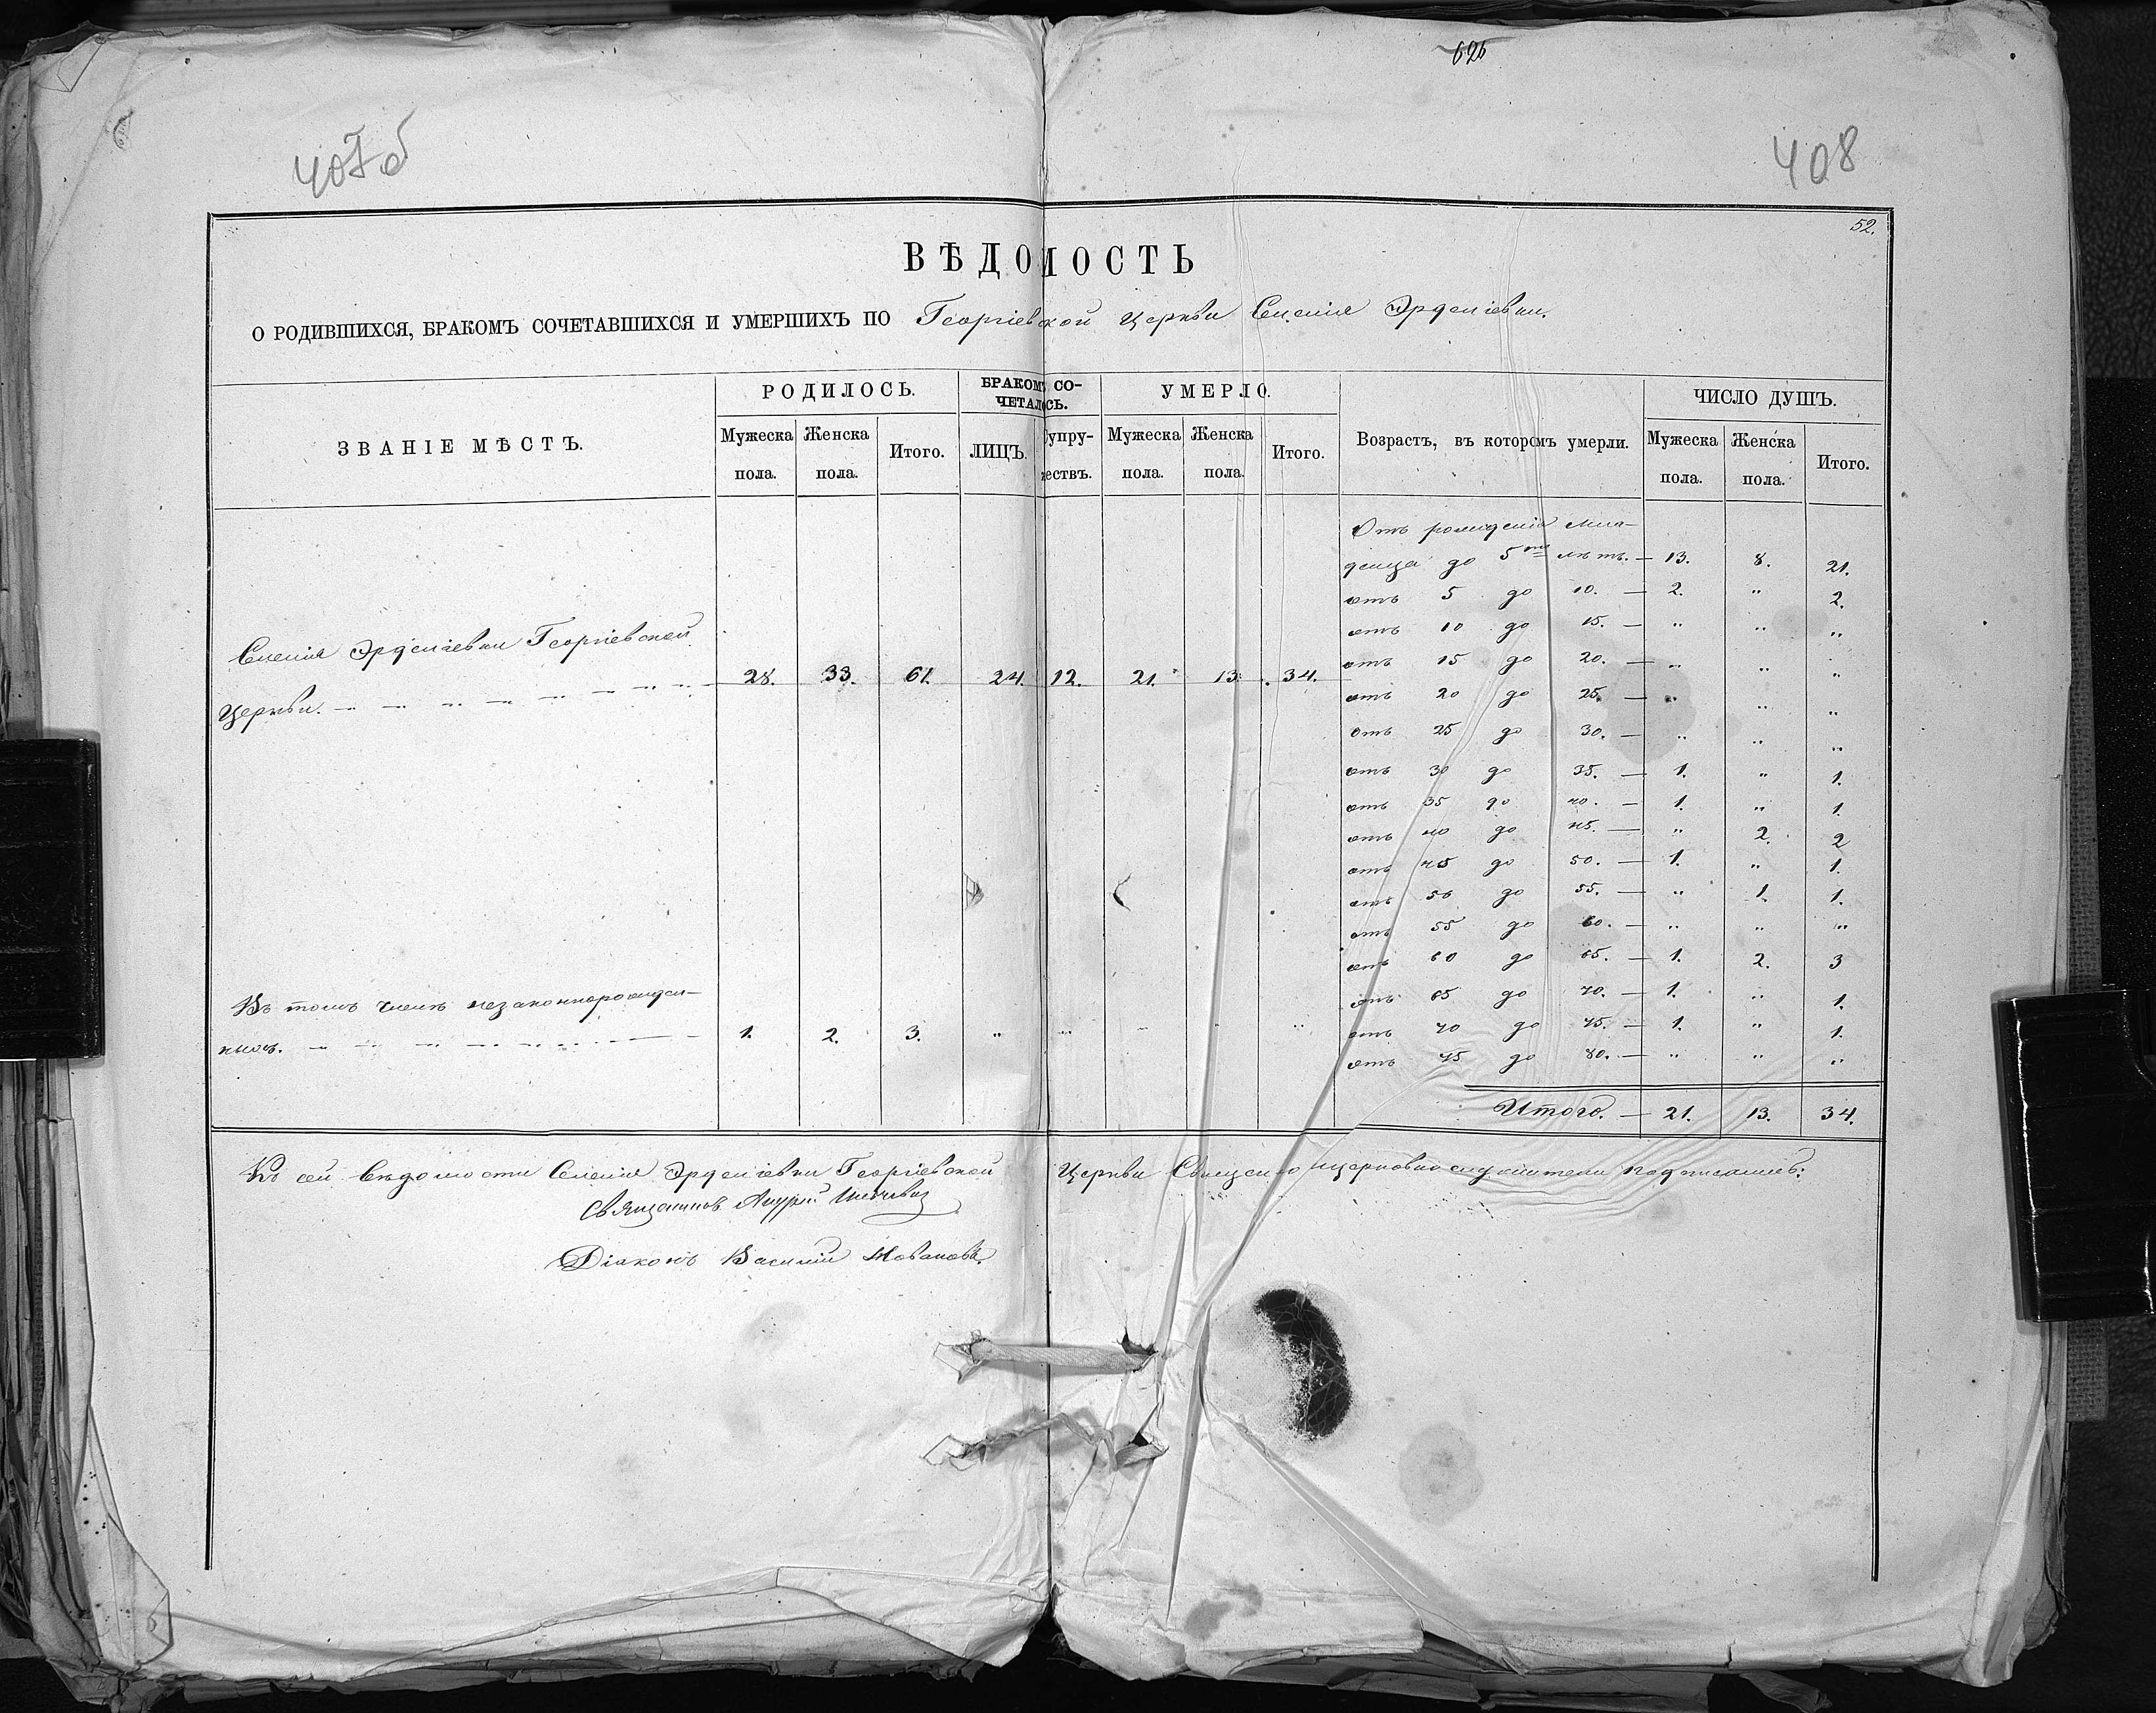 626
407б
408
52.
ВѢДОМОСТЬ
О РОДИВШИХСЯ, БРАКОМЪ СОЧЕТАВШИХСЯ И УМЕРШИХЪ ПО Георгіевской Церкви Селенія Эрделіевки.
ЗВАНІЕ МѢСТЪ. РОДИЛОСЬ. БРАКОМЪ СОЧЕТАЛОСЬ. УМЕРЛО. Возрастъ, въ которомъ умерли. ЧИСЛО ДУШЪ.
Мужеска пола. Женска пола. Итого. ЛИЦЪ. Супружествъ. Мужеска пола. Женска пола. Итого. Мужеска пола. Женска пола. Итого.
Селенія Эрделіевки Георгіевской
Церкви. 28. 33. 61. 24. 12. 21. 13. 34.
Въ томъ числѣ незаконнорожден-
ныхъ. 1. 2. 3. " " " " "
Отъ рожденія мла-
денца до 5ти лѣтъ. — 13. 8. 21.
отъ 5 до 10. — 2. " 2.
отъ 10 до 15. — " " "
отъ 15 до 20. — " " "
отъ 20 до 25. — " " "
отъ 25 до 30. — " " "
отъ 30 до 35. — 1. " 1.
отъ 35 до 40. — 1. " 1.
отъ 40 до 45. — " 2. 2
отъ 45 до 50. — 1. " 1.
отъ 50 до 55. — " 1. 1.
отъ 55 до 60. — " " "
отъ 60 до 65. — 1. 2. 3
отъ 65 до 70. — 1. " 1.
отъ 70 до 75. — 1. " 1.
отъ 75 до 80. — " " "
Итого. — 21. 13. 34.
Къ сей вѣдомости Селенія Эрделіевки Георгіевской Церкви Священно церковнослужители подписались:
Священникъ Андрей
Діаконъ Василій